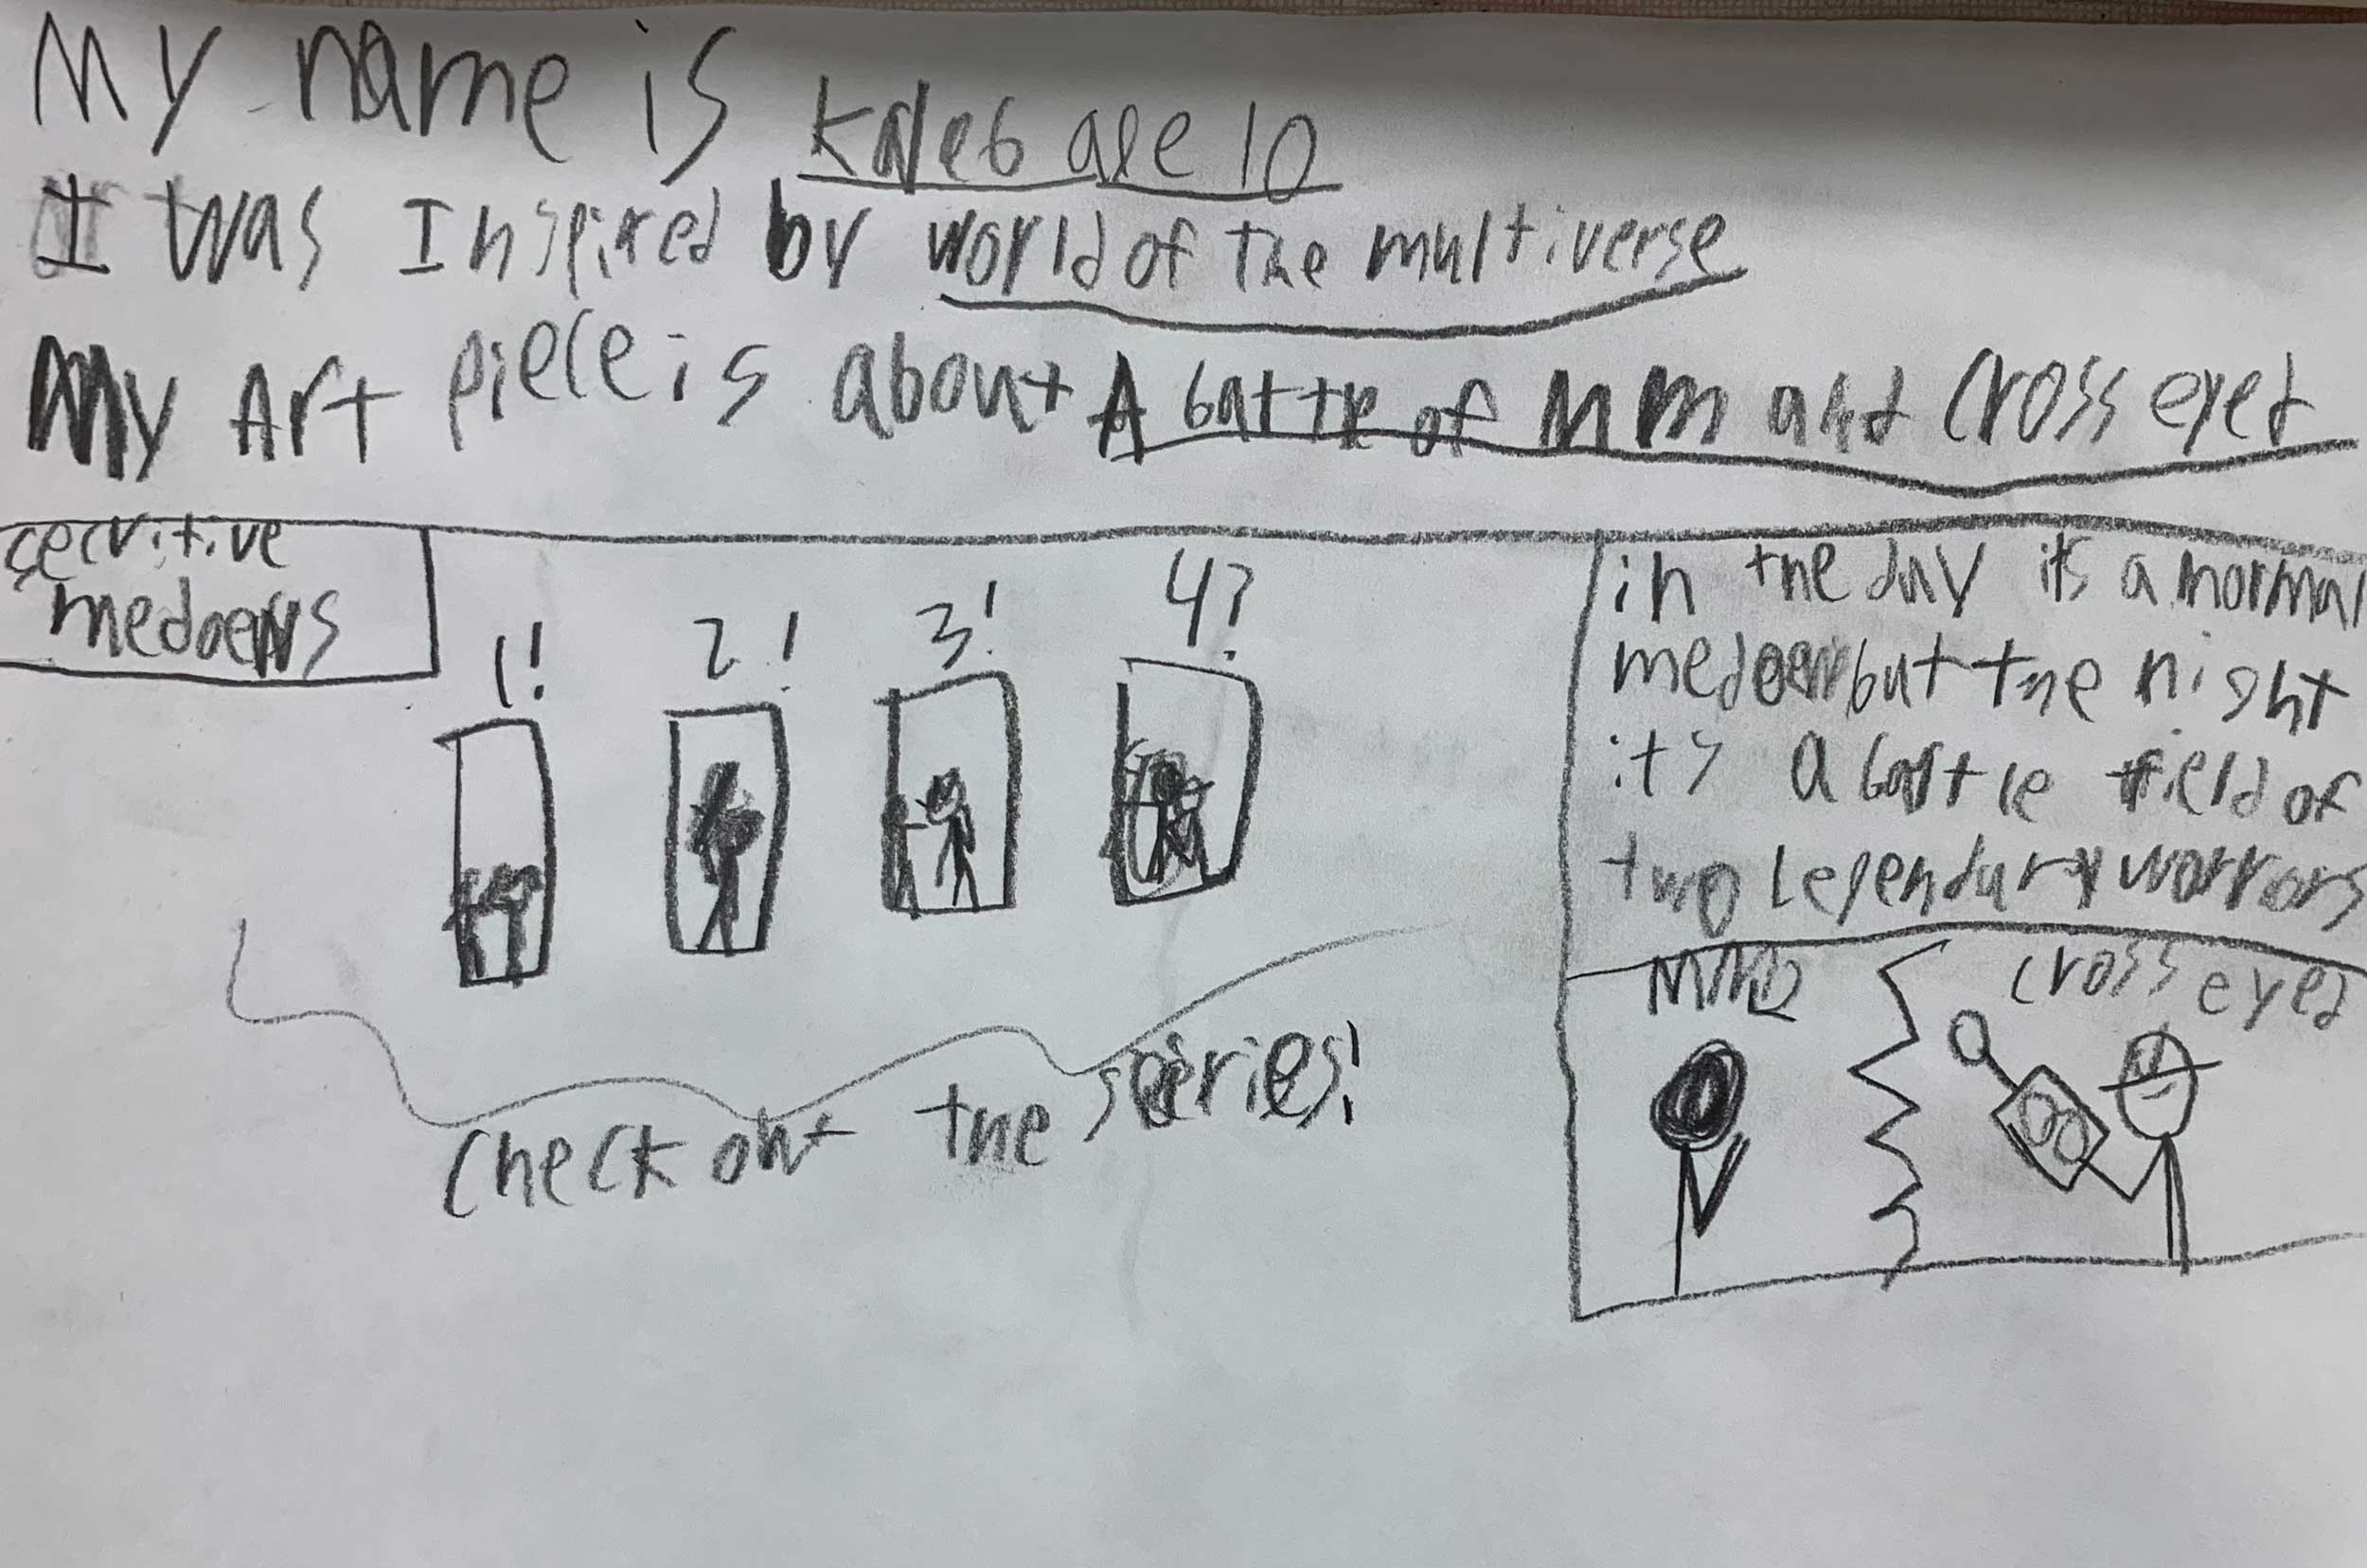 My name is Kaleb age 10
I was Inspired by world of the multiverse
My Art piece is about A battle of MM and Cross eyed
secritive
medoews
1! 2! 3! 4?
check out the series!
in the day it's a normal
medoew but the night
its a battle field of
two legendary worrors
cross eyed